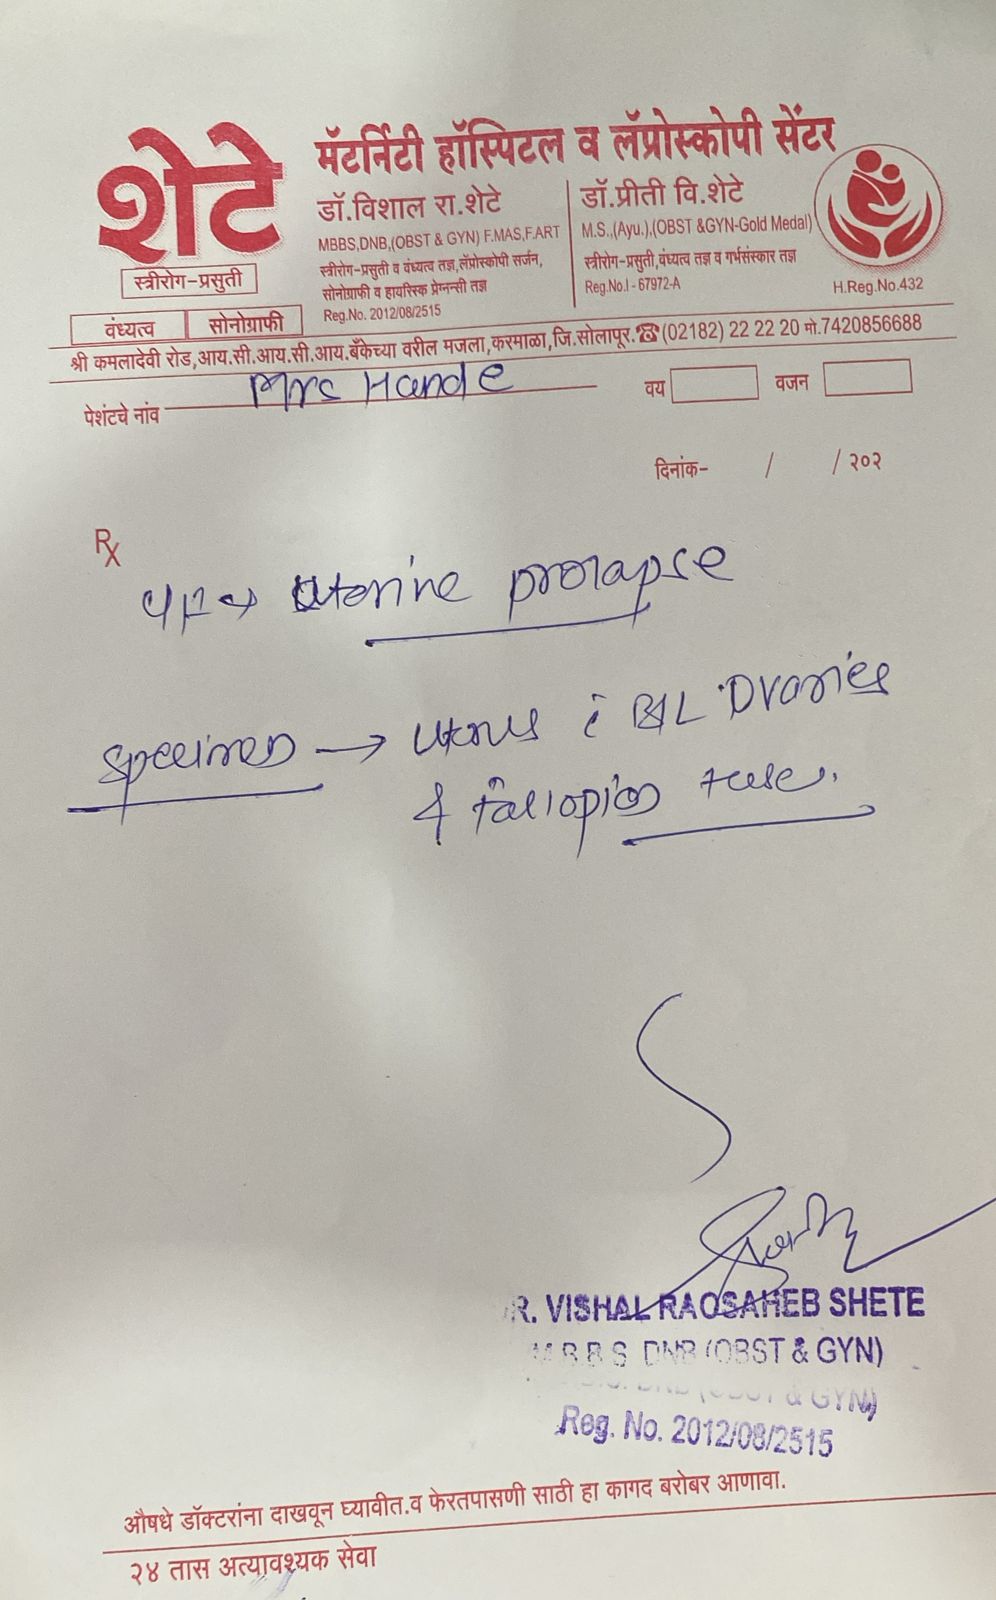 शेटे
मॅटर्निटी हॉस्पिटल व लॅप्रोस्कोपी सेंटर
स्त्रीरोग-प्रसुती
वंध्यत्व सोनोग्राफी
डॉ.विशाल रा.शेटे
MBBS,DNB,(OBST & GYN) F.MAS,F.ART
स्त्रीरोग-प्रसुती व वंध्यत्व तज्ञ,लॅप्रोस्कोपी सर्जन,
सोनोग्राफी व हायरिस्क प्रेग्नन्सी तज्ञ
Reg.No. 2012/08/2515
डॉ.प्रीती वि.शेटे
M.S.,(Ayu.),(OBST &GYN-Gold Medal)
स्त्रीरोग-प्रसुती,वंध्यत्व तज्ञ व गर्भसंस्कार तज्ञ
Reg.No.I - 67972-A
H.Reg.No.432
श्री कमलादेवी रोड,आय.सी.आय.सी.आय.बँकेच्या वरील मजला,करमाळा,जि.सोलापूर.☎(02182) 22 22 20 मो.7420856688
पेशंटचे नांव Mrs Hande वय वजन
दिनांक- / /२०२
Rx
Uterine prolapse
Specimen → Uterus c̄ B/L Ovaries
& fallopian tube.
R. VISHAL RAOSAHEB SHETE
M.B.B.S. DNB (OBST & GYN)
Reg. No. 2012/08/2515
औषधे डॉक्टरांना दाखवून घ्यावीत.व फेरतपासणी साठी हा कागद बरोबर आणावा.
२४ तास अत्यावश्यक सेवा